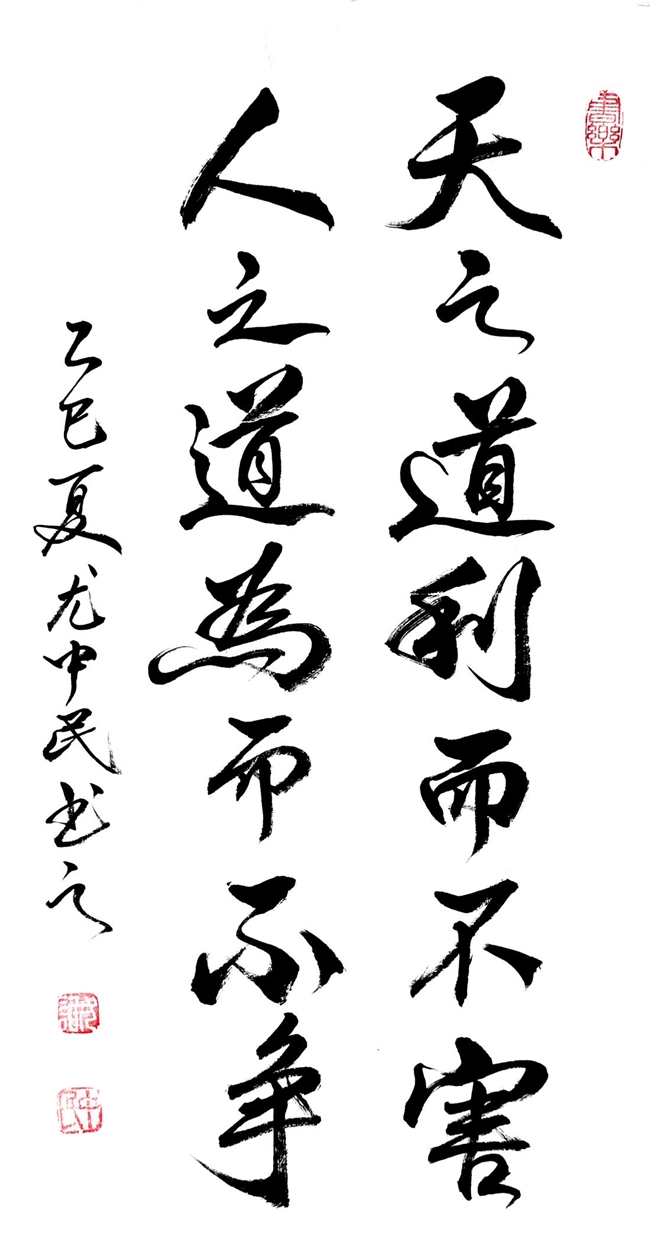 天之道利而不害
人之道為而不争
乙巳夏尤中民书之